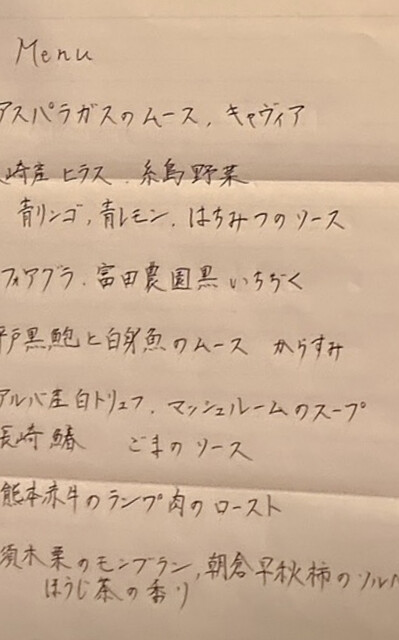 Menu
アスパラガスのムース、キャヴィア
崎産 ヒラス、糸島野菜
青リンゴ、青レモン、はちみつのソース
フォアグラ、富田農園黒いちぢく
平戸黒鮑と白身魚のムース からすみ
アルバ産白トリュフ、マッシュルームのスープ
長崎鰆 ごまのソース
熊本赤牛のランプ肉のロースト
須木栗のモンブラン、朝倉早秋柿のソルベ
ほうじ茶の香り